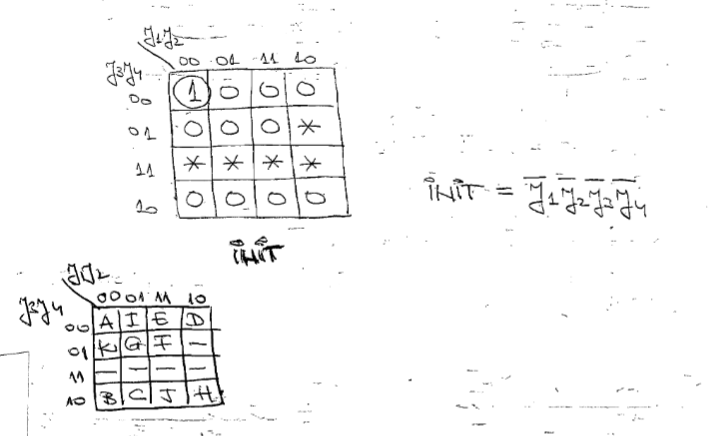 y1y2
y3y4 00 01 11 10
00 1 0 0 0
01 0 0 0 *
11 * * * *
10 0 0 0 0
INIT
INIT = y̅1 y̅2 y̅3 y̅4
y1y2
y3y4 00 01 11 10
00 A I E D
01 K G F —
11 — — — —
10 B C J H